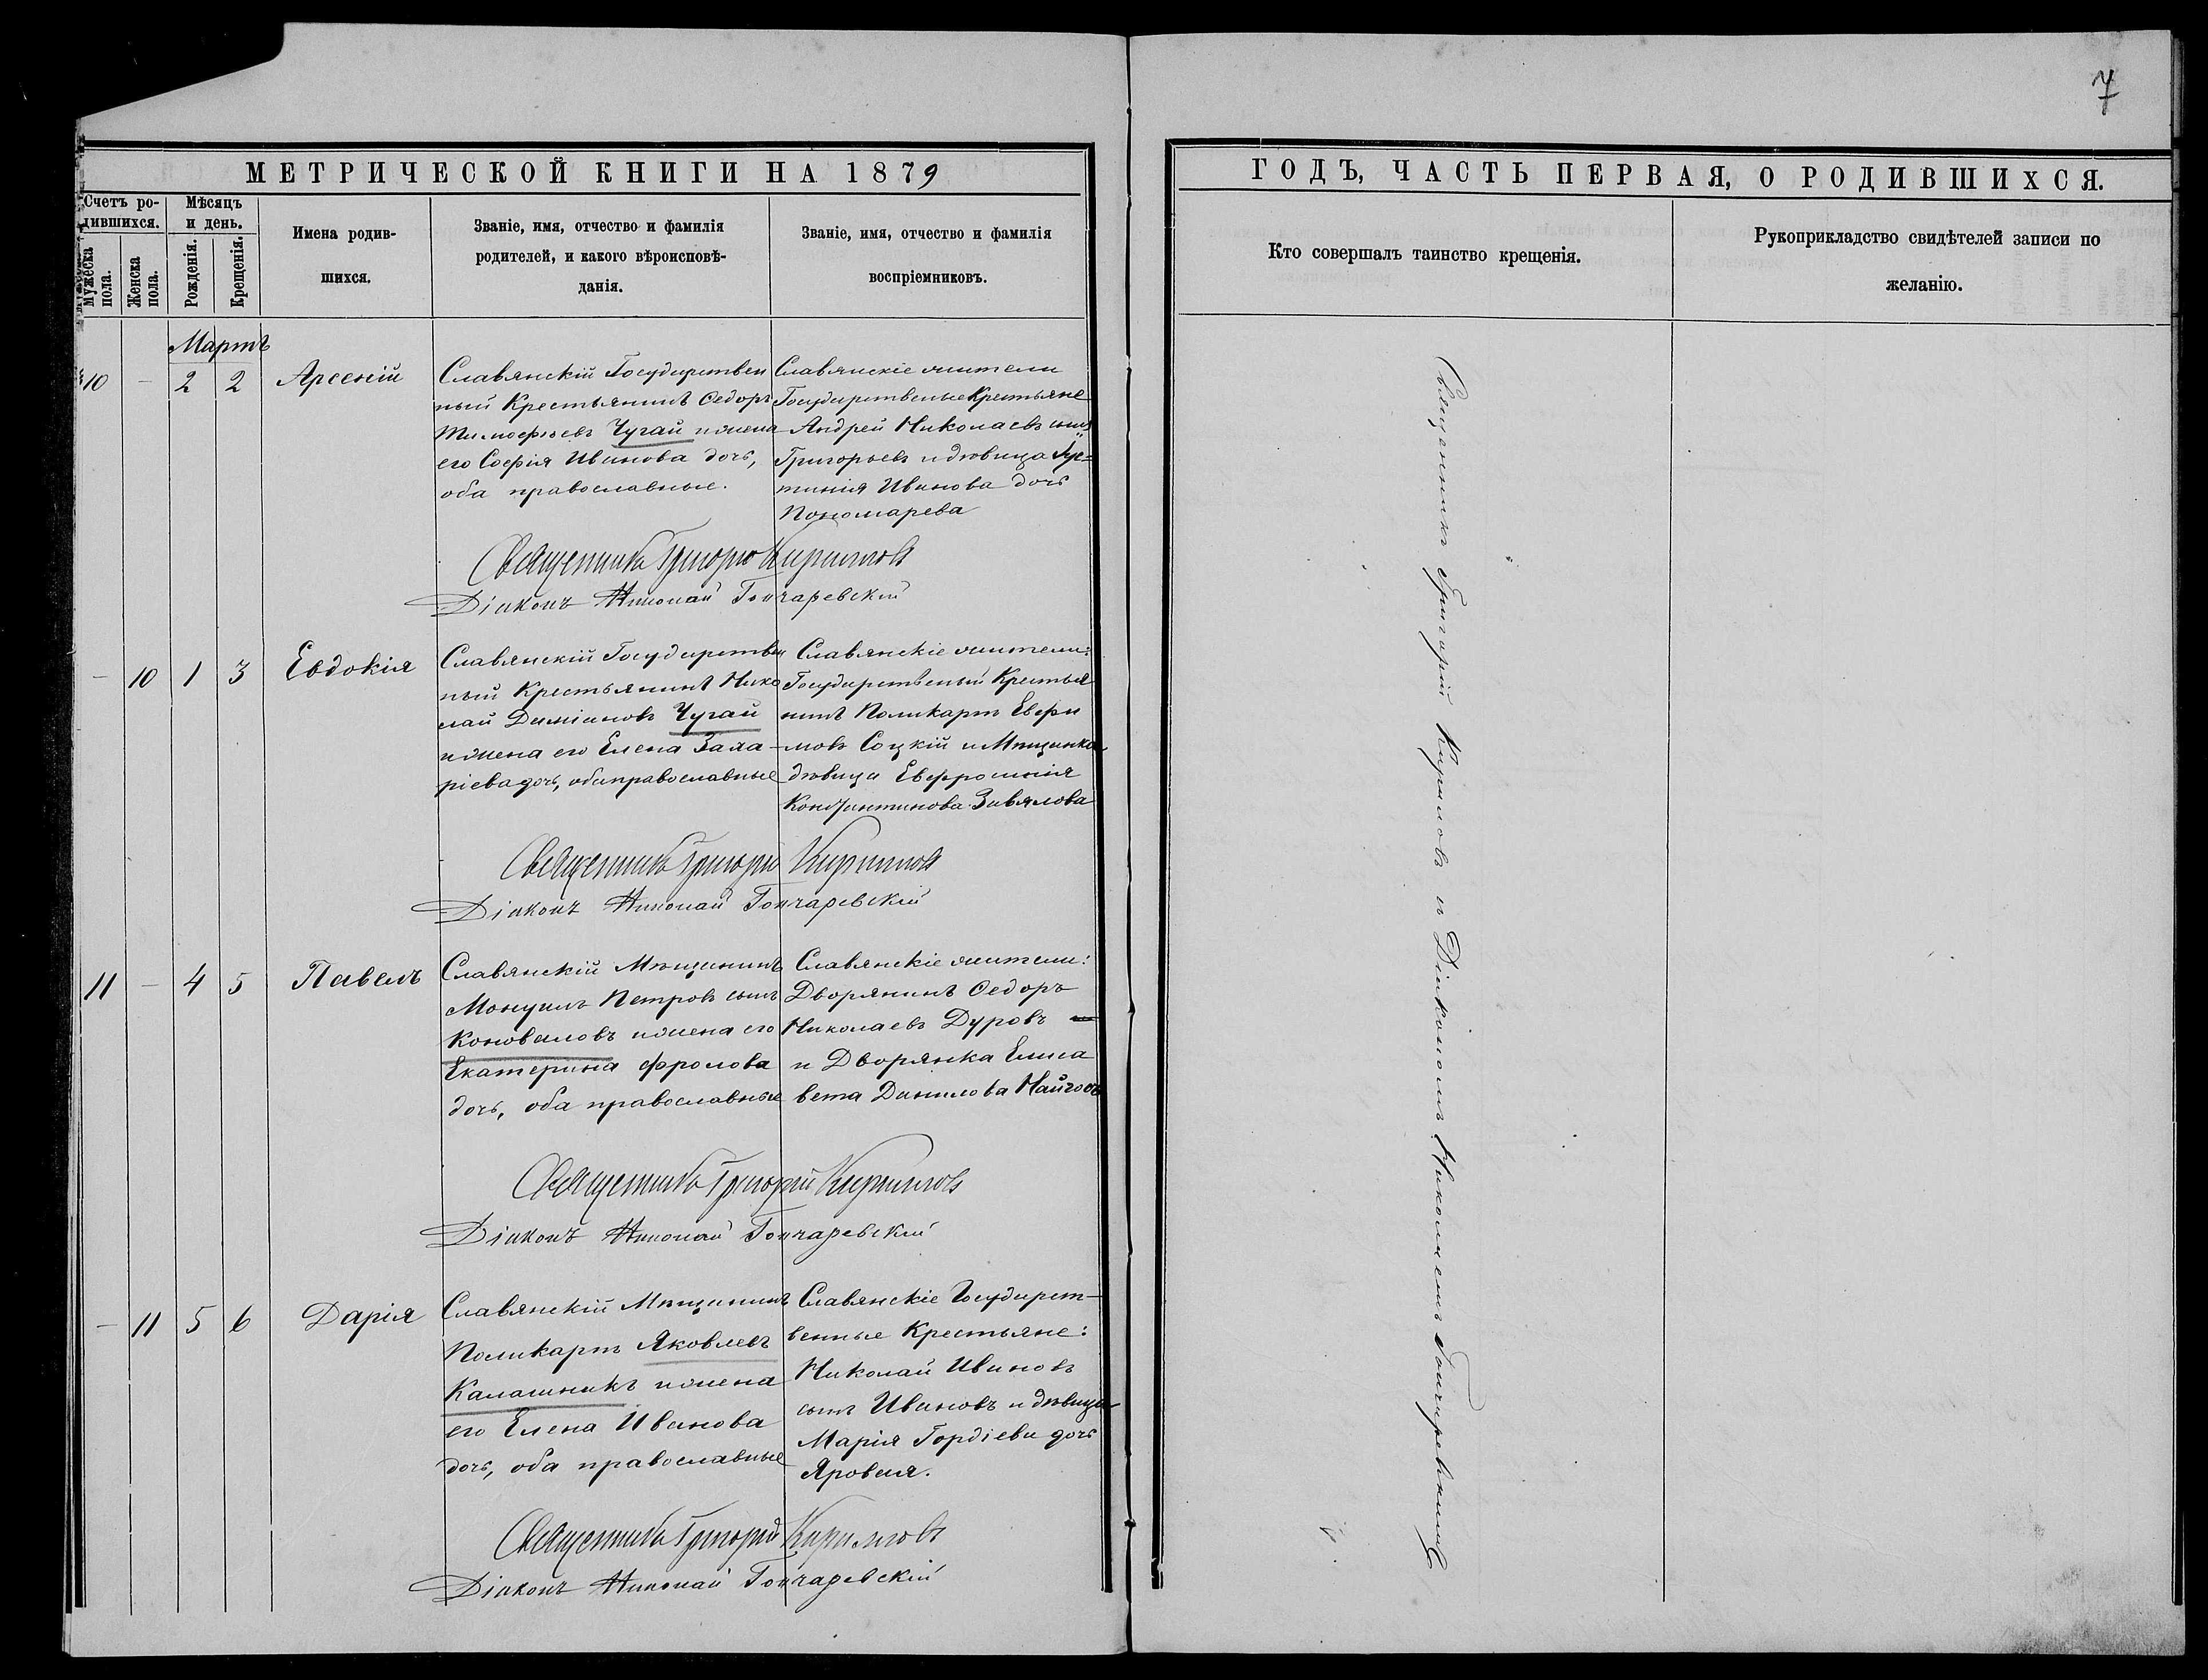 7
МЕТРИЧЕСКОЙ КНИГИ НА 1879
ГОДЪ, ЧАСТЬ ПЕРВАЯ, О РОДИВШИХСЯ.
Счетъ ро-
дившихся.
Мужеска
пола.
Женска
пола.
Мѣсяцъ
и день.
Рожденія.
Крещенія.
Имена родив-
шихся.
Званіе, имя, отчество и фамилія
родителей, и какого вѣроисповѣ-
данія.
Званіе, имя, отчество и фамилія
воспріемниковъ.
Кто совершалъ таинство крещенія.
Рукоприкладство свидѣтелей записи по
желанію.
Мартъ
10 – 2 2 Арсеній
Славянскій Государствен
ный Крестьянинъ Ѳедоръ
Тимофѣевъ Чугай и жена
его Софія Иванова дочь,
оба православные.
Славянскіе жители
Государственые Крестьяне
Андрей Николаевъ сынъ
Григорьевъ и дѣвица Іус=
тинія Иванова дочь
Пономарева
Священникъ Григорій Кириловъ
Діаконъ Николай Гончаревскій
– 10 1 3 Евдокія
Славянскій Государствен
ный Крестьянинъ Нико
лай Даміановъ Чугай
и жена его Елена Заха-
ріева дочь, оба православные
Славянскіе жители:
Государственый Крестья
нинъ Поликарпъ Евфи
мовъ Соцкій и Мѣщанка
дѣвица Евфросинія
Константинова Завялова
Священникъ Григорій Кириловъ
Діаконъ Николай Гончаревскій
11 – 4 5 Павелъ
Славянскій Мѣщанинъ
Мануилъ Петровъ сынъ
Коноваловъ и жена его
Екатерина Фролова
дочь, оба православные
Славянскіе жители:
Дворянинъ Ѳедоръ
Николаевъ Дуровъ
и Дворянка Елиса
вета Данилова
Священникъ Григорій Кириловъ
Діаконъ Николай Гончаревскій
– 11 5 6 Дарія
Славянскій Мѣщанинъ
Поликарпъ Яковлевъ
Калашникъ и жена
его Елена Иванова
дочь, оба православные
Славянскіе Государст-
венные Крестьяне:
Николай Ивановъ
сынъ Ивановъ и дѣвица
Марія Гордіева дочь
Яровая.
Священникъ Григорій Кириловъ
Діаконъ Николай Гончаревскій
Священникъ Григорій Кириловъ и Діакономъ Николаемъ Гончаревскимъ